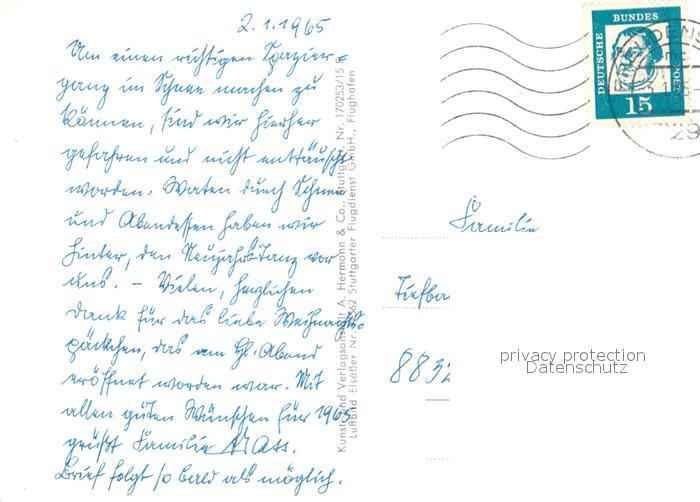 2.1.1965
Um einen richtigen Spazier=
gang im Schnee machen zu
können, sind wir hierher
gefahren und nicht enttäuscht
worden. Waten durch Schnee
und Abendessen haben wir
hinter, den Neujahrs-Tanz vor
uns. – Vielen, herzlichen
Dank für das liebe Weihnachts-
päckchen, das am Hl. Abend
eröffnet worden war. Mit
allen guten Wünschen für 1965
grüßt Familie Mass.
Brief folgt so bald als möglich.
Kunst- und Verlagsanstalt A. Hermann & Co., Stuttgart, Nr. 170253/15 E
Luftbild Elsäßer Nr. 62 Stuttgarter Flugdienst GmbH., Flughafen
DEUTSCHE
BUNDES
POST
15
FREUDENS
29
Familie
Tiefba
8832
privacy protection
Datenschutz